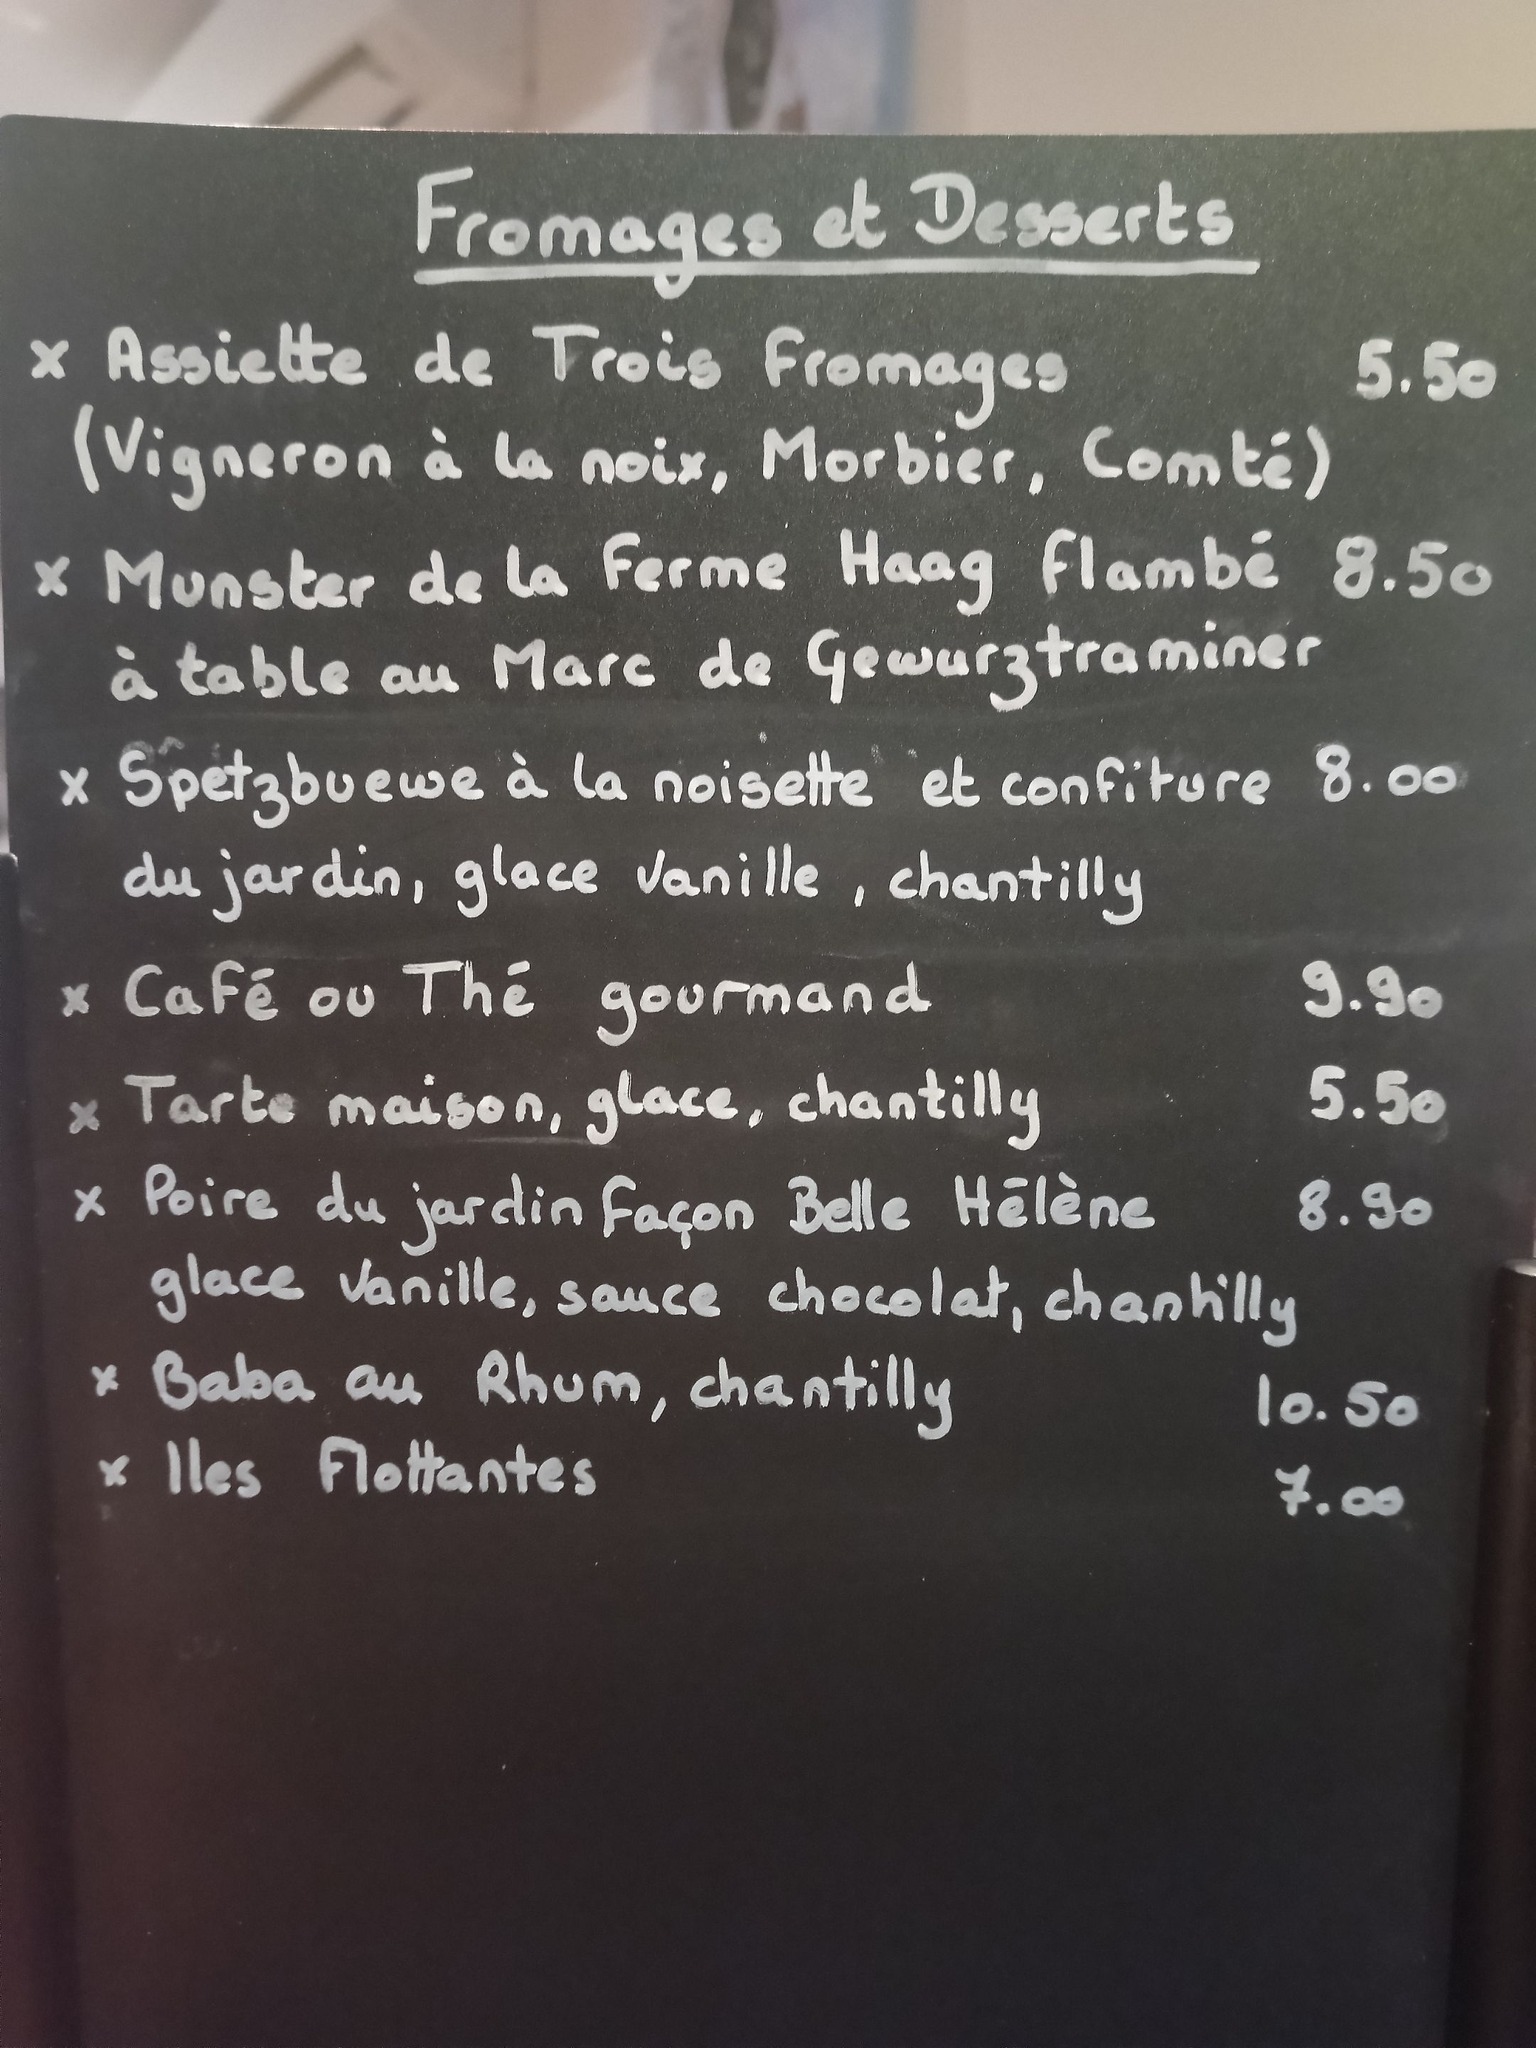 Fromages et Desserts
x Assiette de Trois Fromages 5.50
(Vigneron à la noix, Morbier, Comté)
x Munster de la Ferme Haag flambé 8.50
à table au Marc de Gewurztraminer
x Spetzbuewe à la noisette et confiture 8.00
du jardin, glace vanille, chantilly
x Café ou Thé gourmand 9.90
x Tarte maison, glace, chantilly 5.50
x Poire du jardin Façon Belle Hélène 8.90
glace vanille, sauce chocolat, chantilly
x Baba au Rhum, chantilly 10.50
x Iles Flottantes 7.00